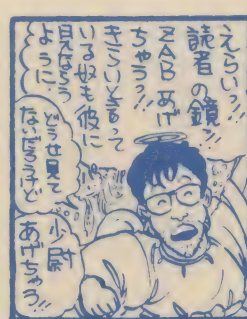 えらいっ!!
読者の鏡ッ!!
ZABあげ
ちゃうっ!!
きらいと言って
いる奴も彼に
見ならう
ように。
どうせ見て
ないだろうけど
少尉
あげちゃう!!